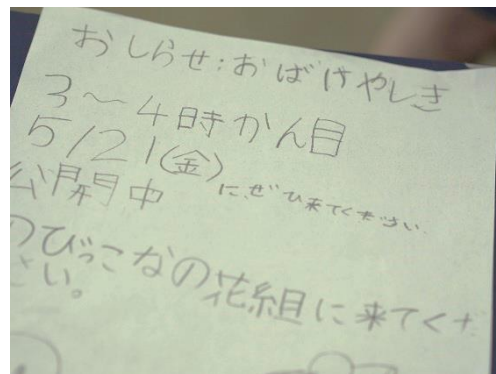 おしらせ:おばけやしき
3〜4時かん目
5/21(金)
公開中 に、ぜひ来てください
のびっこなの花組に来てくだ
さい。